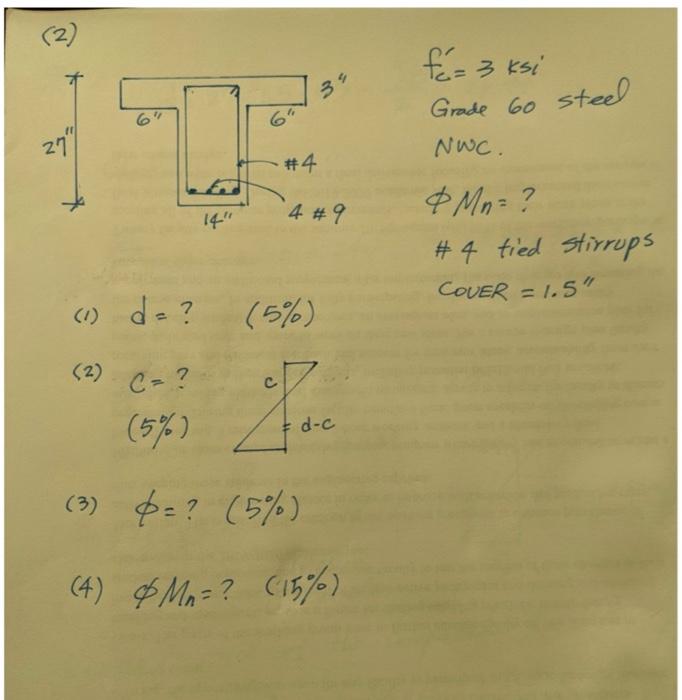 (2)
3"
6" 6"
27"
#4
14" 4 #9
f'c = 3 ksi
Grade 60 steel
NWC.
φ Mn = ?
# 4 tied stirrups
COVER = 1.5"
(1) d = ? (5%)
(2) C = ? c
(5%) d-c
(3) φ = ? (5%)
(4) φ Mn = ? (15%)